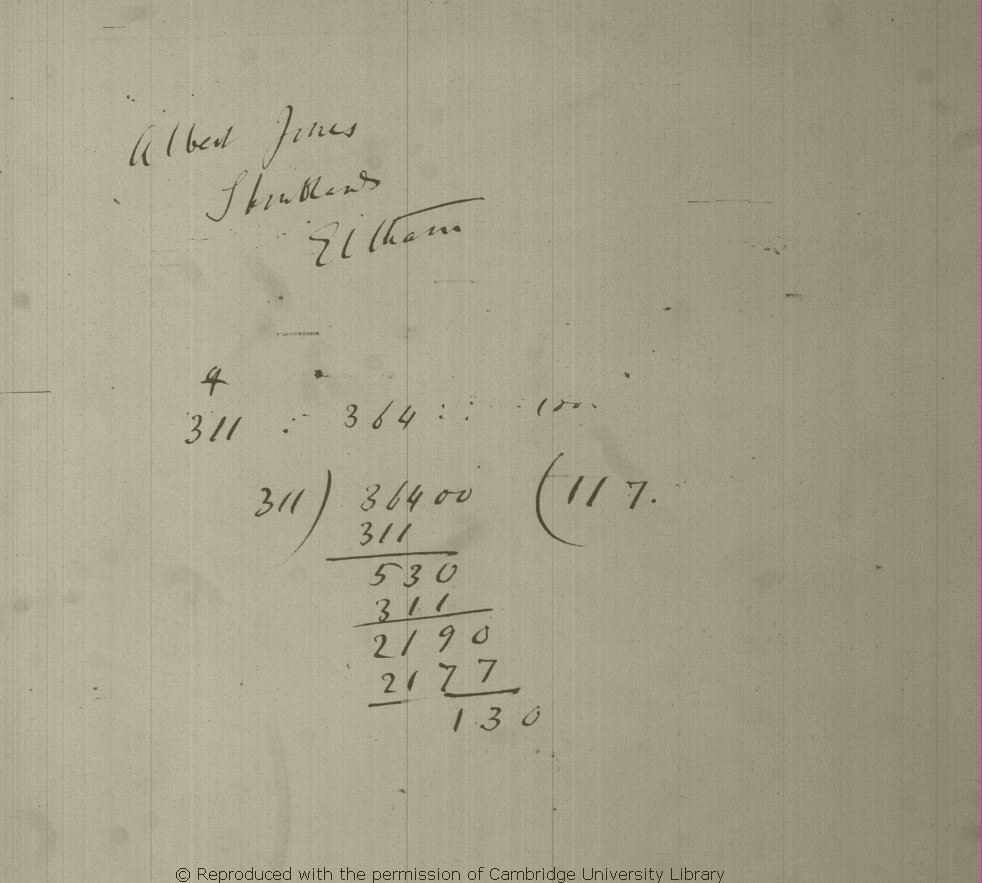 Albert Jones
Eltham
9
311 : 364 :: 100.
311) 36400 (117.
311
530
311
2190
2177
130
© Reproduced with the permission of Cambridge University Library